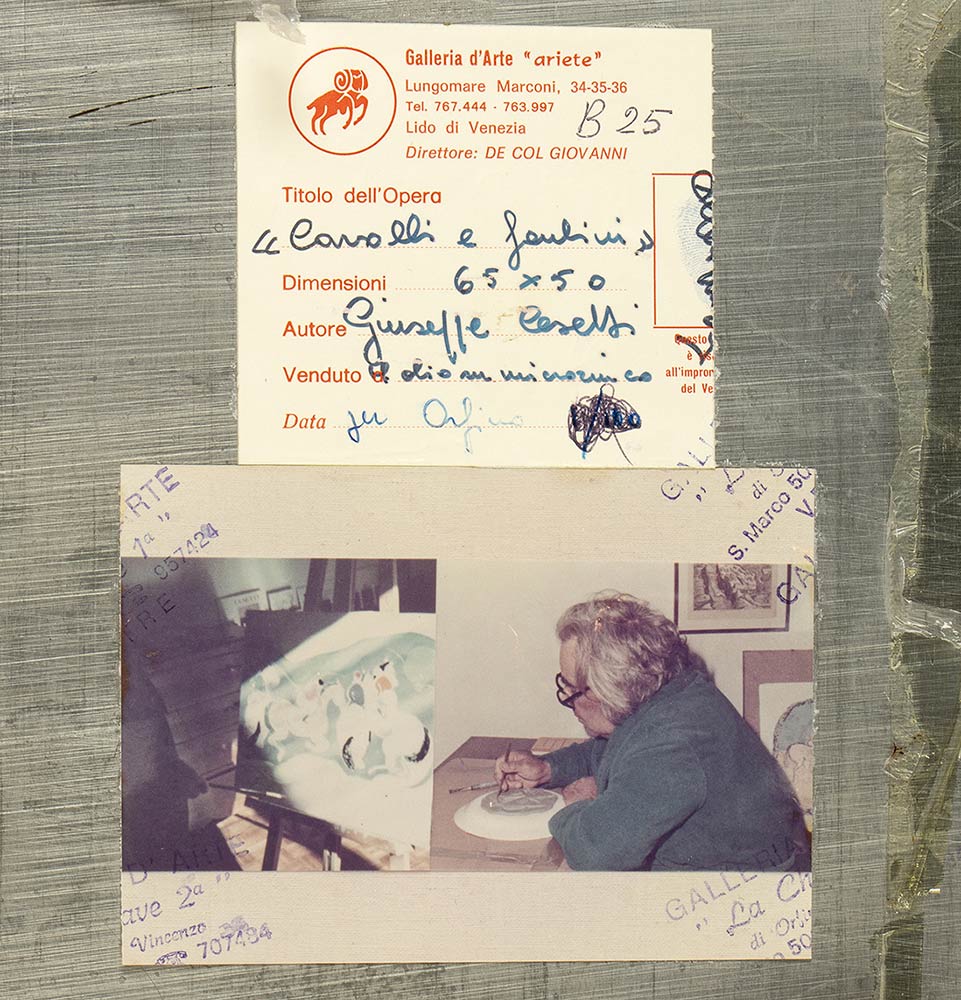 Galleria d'Arte "ariete"
Lungomare Marconi, 34-35-36
Tel. 767.444 - 763.997
Lido di Venezia
B 25
Direttore: DE COL GIOVANNI
Titolo dell'Opera
« Cavalli e fantini »
Dimensioni 65 x 50
Autore Giuseppe Cesetti
Venduto a olio su
Data per
Questo
è
all'impron
del Ve
ARTE
1a "
957424
TRE
GAL
di
S. Marco 50
V
GA
D'ARTE
ave 2a "
Vincenzo
707494
GALLERIA
"La Ch
di Orfi
50